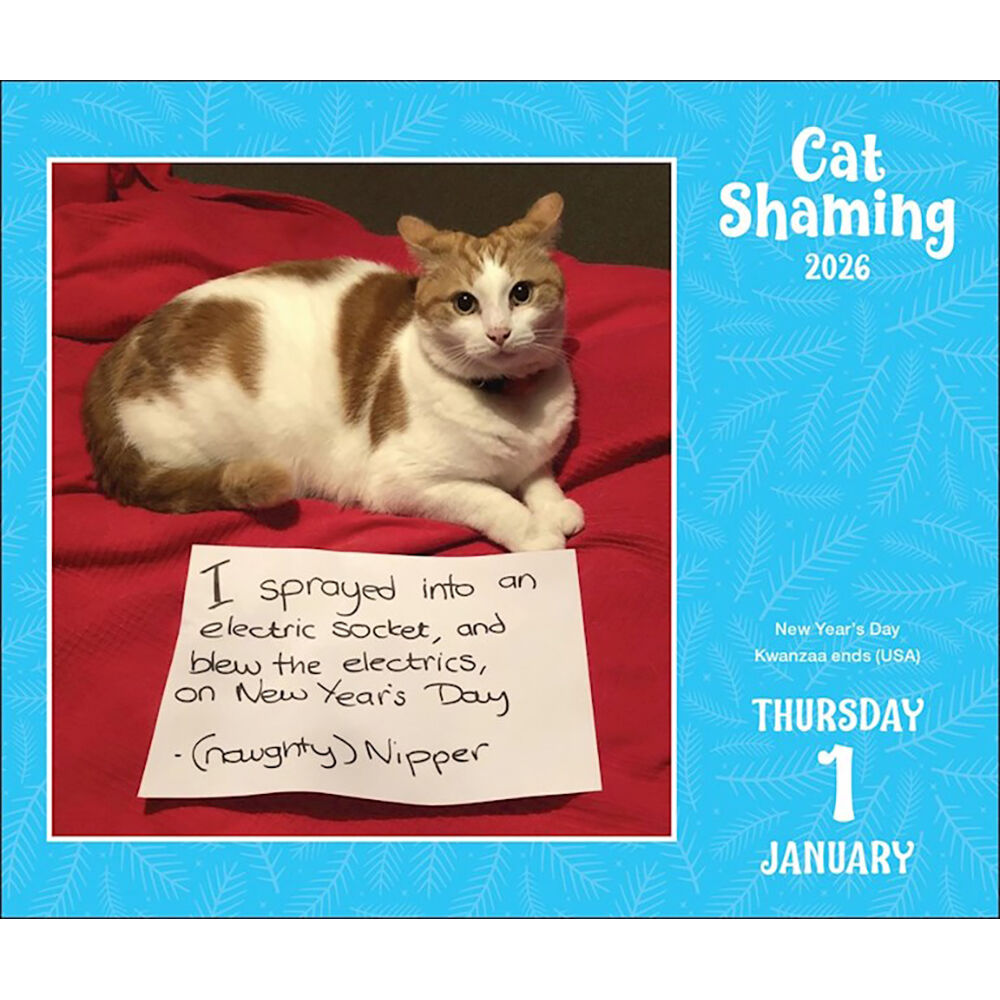 Cat
Shaming
2026
I sprayed into an
electric socket, and
blew the electrics,
on New Year's Day
- (naughty) Nipper
New Year's Day
Kwanzaa ends (USA)
THURSDAY
1
JANUARY